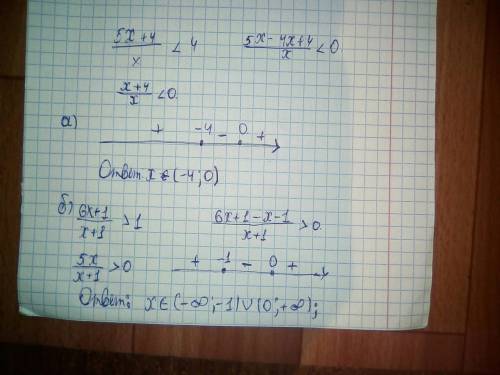 (5x+4)/x < 4 (5x-4x+4)/x < 0
(x+4)/x < 0
а)
+ -4 - 0 +
Ответ x ∈ (-4; 0)
б) (6x+1)/(x+1) > 1 (6x+1-x-1)/(x+1) > 0
5x/(x+1) > 0 + -1 - 0 +
Ответ: x ∈ (-∞; -1) ∪ (0; +∞);